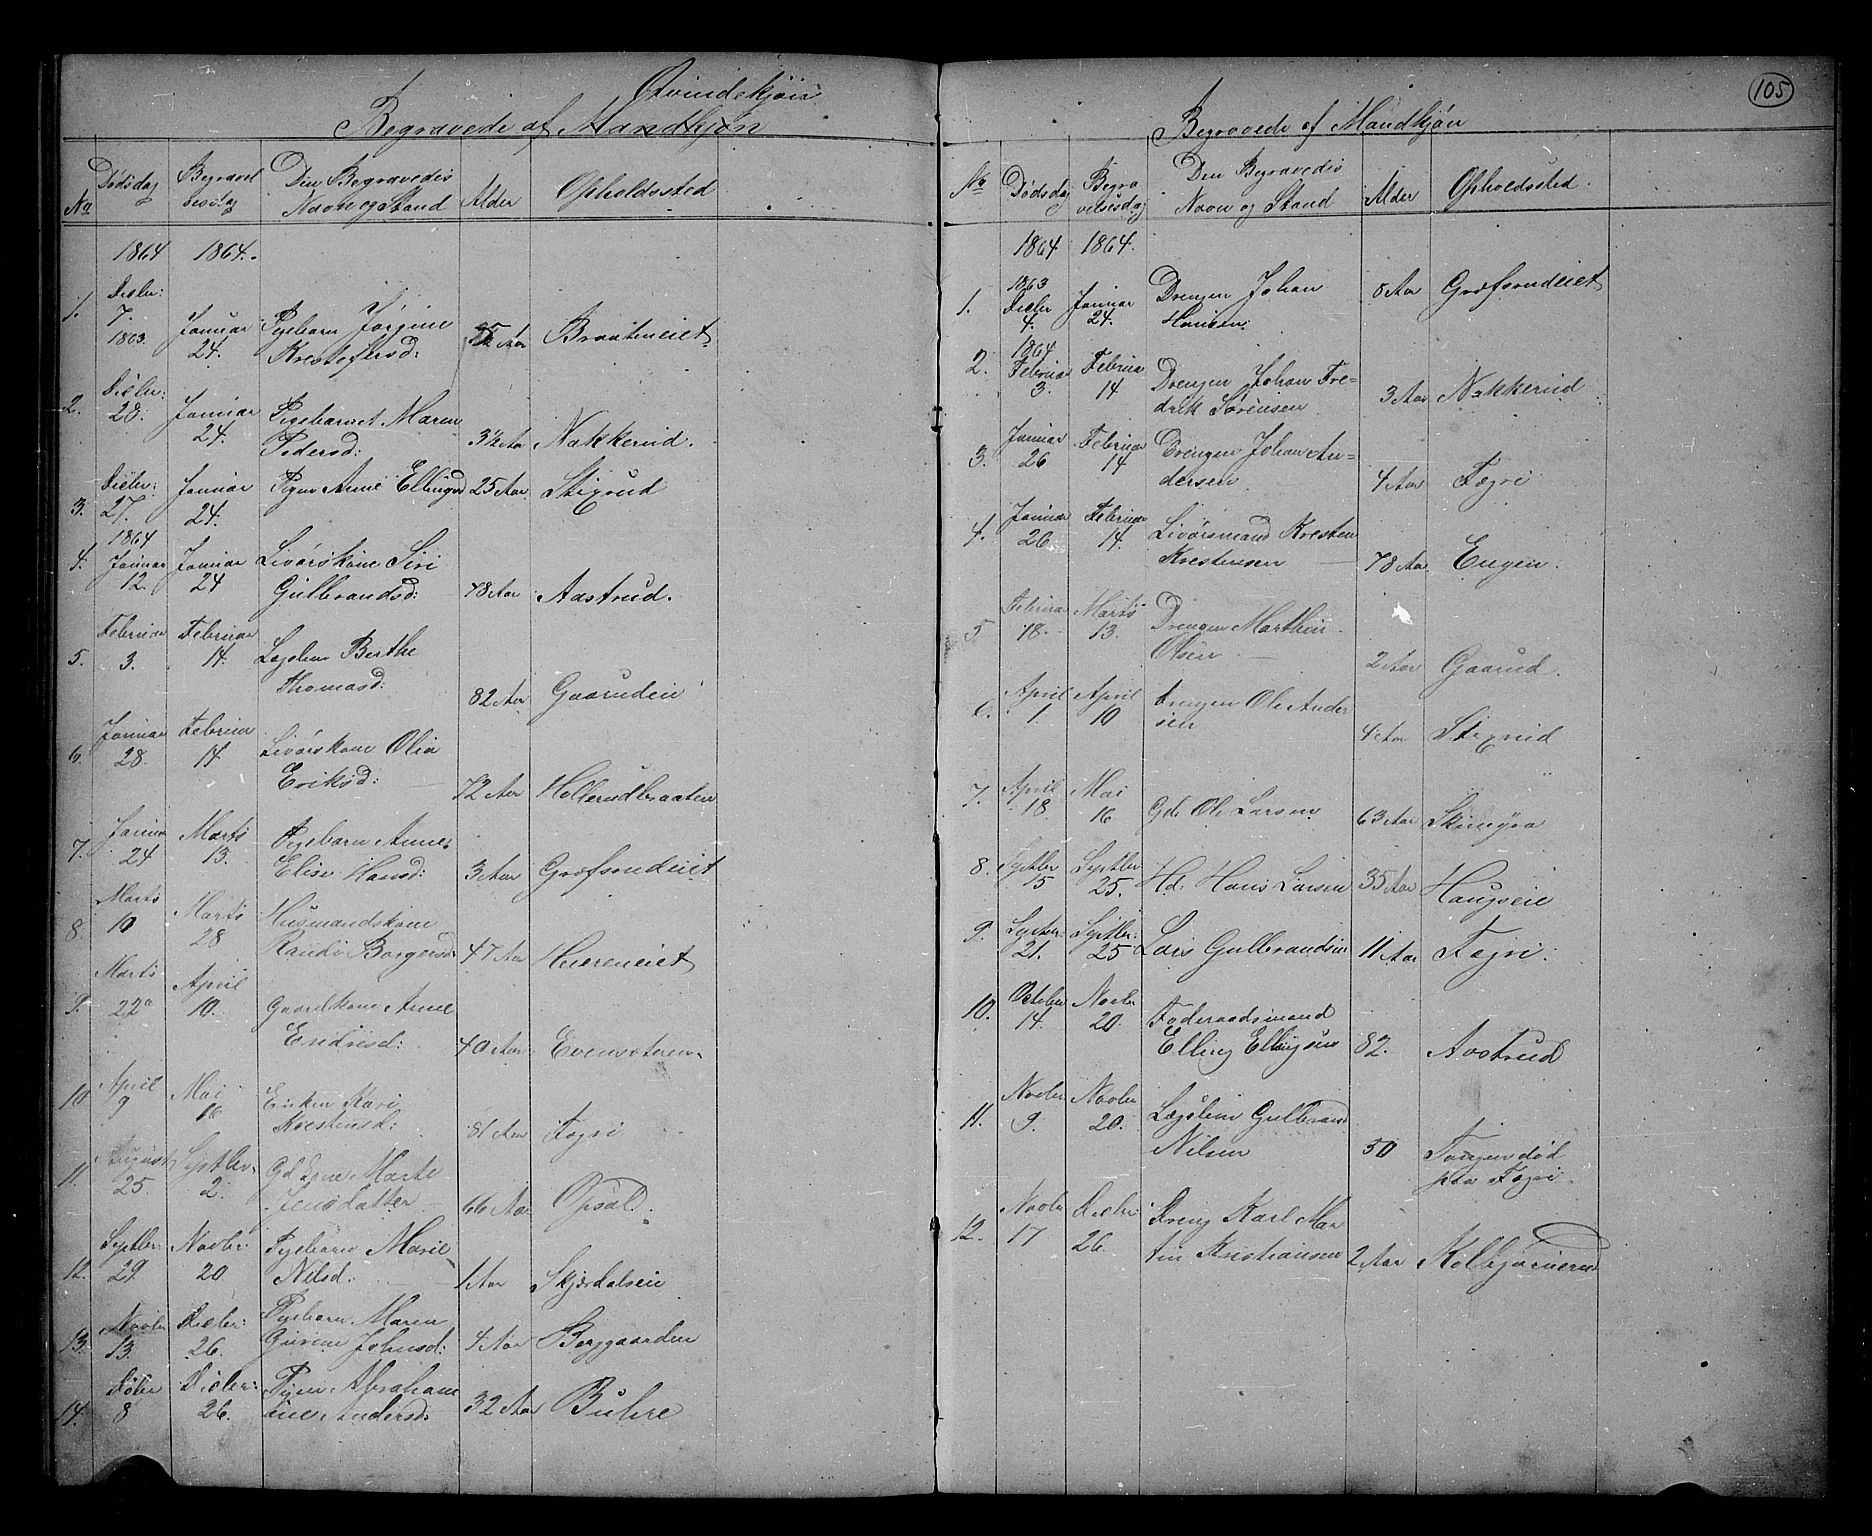 Qvindekjøn
Begravede af Mandkjøn
No Dødsdag Begravelsesdag Den Begravedes Navn og Stand Alder Opholdssted
1864 1864.
1. Decbr: 7. 1863. Januar 24. Pigebarn Jørgine
Kristofersd: Aar Braateneiet.
2. Decbr: 28. Januar 24. Pigebarnet Maren
Pedersd: 3½ Aar Nakkerud.
3. Decbr: 27. Januar 24. Pigen Anne Ellingsd 25 Aar Stixrud
4. 1864 Januar 12. Januar 24 Livørskone Siri
Gulbrandsd: 78 Aar Aastrud.
5. Februar 3. Februar 14. Lægslem Berthe
Thomasd: 82 Aar Gaarudeie
6. Januar 28. Februar 14 Livørskone Olia
Eriksd: 72 Aar Hollerudbraaten
7. Januar 24 Marts 13. Pigebarn Anne
Elise Hansd: 3 Aar Grøfsrudeiet
8. Marts 10 Marts 28 Husmandskone
Randi Borgersd: 47 Aar Huereneiet
9. Marts 22 April 10. Gaardkone Anne
Endresd: 40 Aar Evensæteren.
10 April 9 Mai 16 Enken Kari
Kristensd: 81 Aar Fegri
11. August 25. Septbr. 2. Gd Marte
Jensdatter 66 Aar Opsal.
12. Septbr: 29. Novbr: 20. Pigebarn Marie
Nilsd: 1 Aar Skjærdalseie
13. Novbr 13. Decbr: 26. Pigebarn Maren
Gurine Johnsd: 4 Aar Berggaarden
14. Decbr: 26. Pigen Abraham
ine Andersd: 32 Aar Buhre
105
Begravede af Mandkjøn
No Dødsdag Begravelsesdag Den Begravedes Navn og Stand Alder Opholdssted.
1864 1864.
1. 1863 Decbr 4. Januar 24. Drengen Johan
Hansen 8 Aar Grøfsrudeiet
2. 1864 Februar 3. Februar 14 Drengen Johan Fre=
drik Sørensen 3 Aar Nakkerud
3. Januar 26 Februar 14 Drengen Johan An=
dersen 4 Aar Fægri
4. Januar 26. Februar 14. Livørsmand Kresten
Krestensen 78 Aar Engen.
5 Februar 18. Marts 13. Drengen Marthin
Olsen 2 Aar Gaarud.
6. April 1. April 10 Drengen Ole Ander
sen 4 Aar Stixrud
7. April 18 Mai 16 Gd. Ole Larsen 63 Aar Skimyra
8. Septbr 15 Septbr 25. Hd. Hans Larsen 35 Aar Haugseie
9. Septbr: 21. Septbr: 25 Lars Gulbrandsen 11 Aar Fegri.
10. October 14. Novbr 20. Føderaadsmand
Elling Ellingsen 82. Aastrud
11. Novbr 9. Novbr 20. Lægslem Gulbrand
Nilsen 50 død
paa Fegri.
12. Novbr 17 Decbr 26. Dreng Karl Mar
tin Kristiansen 2 Aar Kolbjørnrud